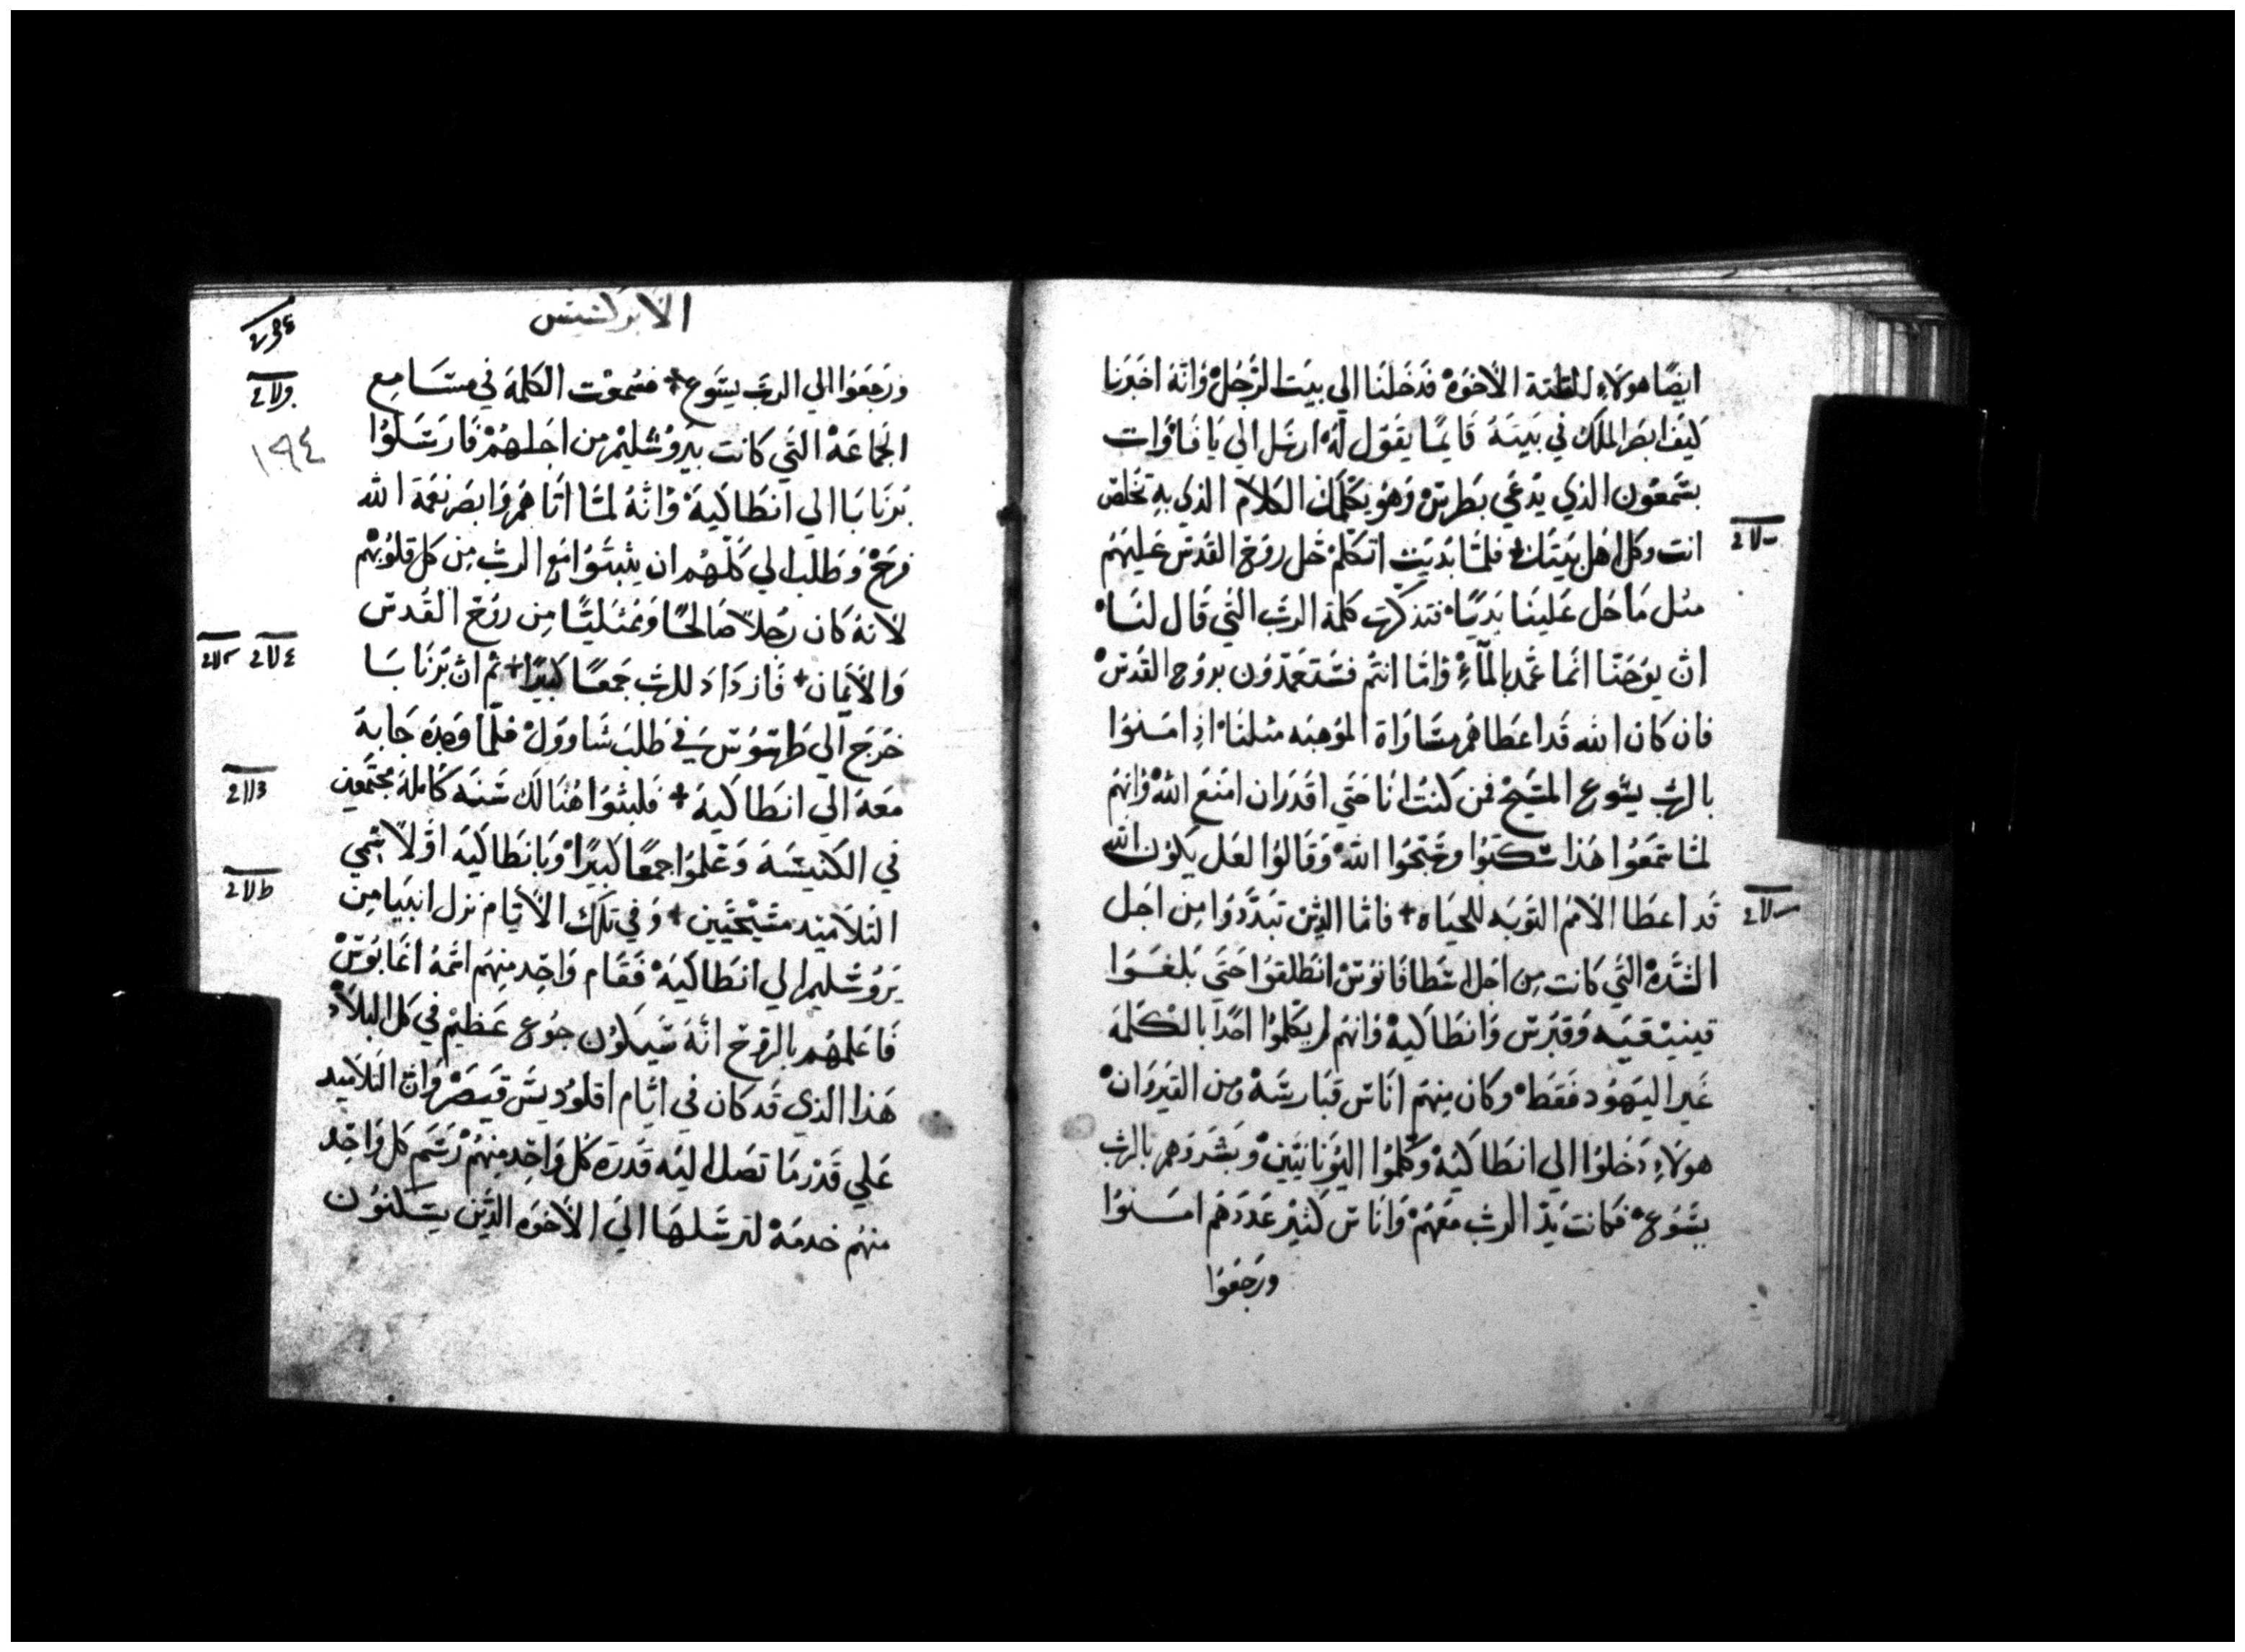 ايضًا هولاءِ الستة الاخوَهْ فدَخلنا الي بيَت الرَجُلْ وَانَهُ اخبَرنا
كيَف ابصَر الملَاك في بيَتهُ قَايمًا يقَول لهُ ارسَل الي يَافا وَات
بسَمعَون الذي يدَعَي بطرسْ وَهوَ يكَلمك الكلاَم الذي بهِ تخلص
انت وكل اهَل بيَتك فلمَا بَديَت اتكلمْ حَل روَح القدسْ عَليهَم
مثل مَا حَل عَلينَا بَديًا فتذكرَت كلمة الربَ التَي قَال لنَا
انَ يوَحَنَا انمَا عَمد بالمآءِ وَامَا انتمْ فسَتعَمَدوَن بروَح القدسْ
فان كان الله قَد اعطَاهمْ مسَاوَاة الموَهبَه مثلنَا اذِ امَنوَا
بالربَ يسَوع المسَيح فمن كنَت انَا حَتَي اقدَر ان امنَع اللهْ وَانهَم
لمَا سَمعَوا هَذا سَكتوَا ومَجَدوَا اللهْ وَقَالوَا لعَل يكوَن الله
قَد اعطَا الامَم التوَبَه للحيَاه + فامَا الذيَن تبَدَدوَا مِن اجَل
الشدَهْ التَي كَانت مِن اجَل اسطَافَانوَسْ انطَلقوَا حَتَي بَلغَوَا
فينيَقيَه وَقبَرس وَانطَاكيهْ وَانهَم لم يكَلموَا احَدًا بالكَلمَهَ
غيَر اليهَوَد فَقطَ وكان منِهَم انَاس قبَارسَهْ ومن القيَروَانْ
هولاءِ دَخلوَا الي انطَاكيَهْ وكَلموَا اليوَنَانيَينْ وبَشروَهمْ بالربَ
يسَوَعْ فكانت يَد الربَ معَهَمْ وَانَاس كثيَر عَددَهَم امَنوَا
ورَجعَوَا
الابركسيس
ورَجعَوَا الي الربَ يسَوَع + فسُمعَت الكلمَة في مسَامِع
الجمَاعَهْ التَي كَانت بيَروَشليَم من اجَلهُمْ فَارسَلوَا
برَنَابَا الي انطَاكيَهْ وَانَهُ لمَا اتَاهمْ وَابصَر نعَمة الله
فرَحْ وَطَلب الي كلَهُم ان يثبَتوَا معَ الربَ مِن كل قلوَبهَم
لانَهُ كَان رَجُلاً صَالحًا وَممَتليًا مِن روَح القُدس
وَالايَمان + فَازدَادَ للربَ جَمعًا كبيَرًا + ثم انَ برَنَابَا
خرَج الي طَرسَوَسْ في طَلب شَاوَوَل فلمَا وَجدَه جَابهَ
معَهُ الي انطَاكيَهْ + فلبثَوا هُنَالكَ سَنهَ كَاملهَ مجتمَعيَن
في الكنيسَهَ وَعَلموَا جمعًا كبيَرًا وَبانطَاكيَه اوَلاً سَمي
التلاَميَد مسَيحيَين + وَفي تلَك الايَام نزل انبيَا مِن
يَروَشليم الي انطَاكيَهْ فقَام وَاحِد منِهَم اسَمهُ اغَابوَسْ
فَاعَلمهَم بالروَح انَهَ سَيكَوُن جوُع عَظيمْ في كل البلاَد
هَذا الذي قَد كان في ايَام اقلوَديسَ قيَصَرْ وَانَ التلاَميَد
عَلي قَدرْ مَا تصَل اليَه قَدرَة كل وَاحِد منِهُمْ رَسَم كل وَاحِد
منهُم خدمَهْ لترسَلهَا الي الاخَوَه الذيَن يسَكنوُن
١٩٤